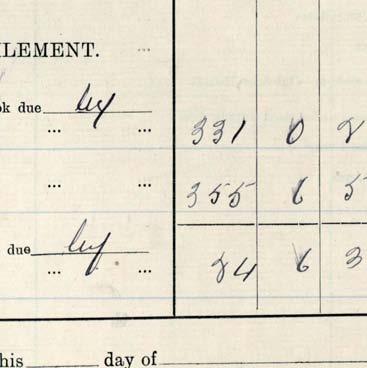 TLEMENT. ...
ok due by
... ... 331 0 2
... ... 355 6 5
due by
... ... 24 6 3
his ______ day of ______